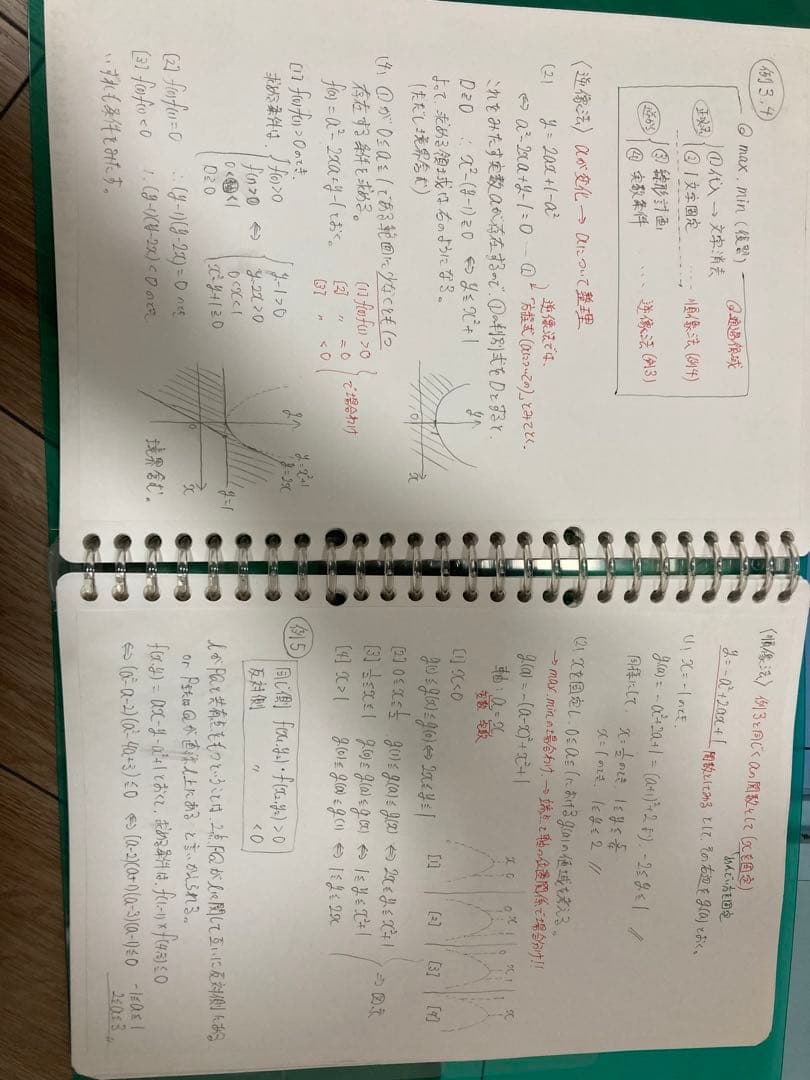 例3,4
◎ max.min (復習)
◎通過領域
順像法
① 代入 → 文字消去
② 1文字固定 ‥‥ 順像法(例4)
逆像法
③ 線形計画
④ 実数条件 ‥‥ 逆像法(例3)
〈逆像法〉 aが変化 → aについて整理
(2) y=2ax+1-a²
⇔ a²-2ax+y-1=0 … ①
逆像法では、
「方程式(aについての)」とみてとく。
これをみたす実数aが存在するので、①の判別式をDとすると、
D≧0 ∴ x²-(y-1)≧0 ⇔ y≦x²+1
よって、求める領域は右のようになる。
(ただし境界含む)
y
0
x
(4) ①が0≦a≦1である範囲に少なくとも1つ
存在する条件を求める。
f(a)=a²-2xa+y-1とおく。
[1] f(0)f(1)>0
[2] 〃 =0
[3] 〃 <0
で場合分け
[1] f(0)f(1)>0のとき、
求める条件は、
f(0)>0
f(1)>0
0<x<1
D≧0
⇔
y-1>0
y-2x>0
0<x<1
x²-y+1≧0
[2] f(0)f(1)=0 ∴(y-1)(y-2x)=0のとき
[3] f(0)f(1)<0 ∴(y-1)(y-2x)<0のとき
いずれも条件をみたす。
y
y=x²+1
y=2x
y=1
0
x
境界含む。
〈順像法〉 例3と同じくaの関数として(xを固定)
y=-a²+2ax+1
関数としてみる
として その右辺をg(a)とおく。
(1) x=-1のとき、
g(a)=-a²-2a+1=-(a+1)²+2 より、-2≦y≦1
同様にして、 x=1/2のとき、1≦y≦5/4
x=1のとき、1≦y≦2 //
(2) xを固定し、0≦a≦1におけるg(a)の値域を考える。
→ max.minの場合分け → 端点と軸の位置関係で場合分け!!
g(a)=-(a-x)²+x²+1
軸:a=x
変数 定数
[1] x<0
g(1)≦g(a)≦g(0) ⇔ 2x≦y≦1
[2] 0≦x≦1/2 g(1)≦g(a)≦g(x) ⇔ 2x≦y≦x²+1
[3] 1/2≦x≦1 g(0)≦g(a)≦g(x) ⇔ 1≦y≦x²+1
[4] x>1 g(0)≦g(a)≦g(1) ⇔ 1≦y≦2x
⇒ 図示
[1] [2] [3] [4]
x 0 1
0 x 1
0 x 1
0 1 x
例5
同じ側 f(x₁,y₁)・f(x₂,y₂)>0
反対側 〃 <0
lがPQと共有点をもつということは、2点P,Qがlに関して互いに反対側にある
or P または Qが直線l上にあると言いかえられる。
f(x,y)=ax-y-a²+1とおくと、求める条件は、f(1,-1)×f(4,2)≦0
⇔(a²-a-2)(a²-4a+3)≦0 ⇔ (a-2)(a+1)(a-3)(a-1)≦0
-1≦a≦1
2≦a≦3